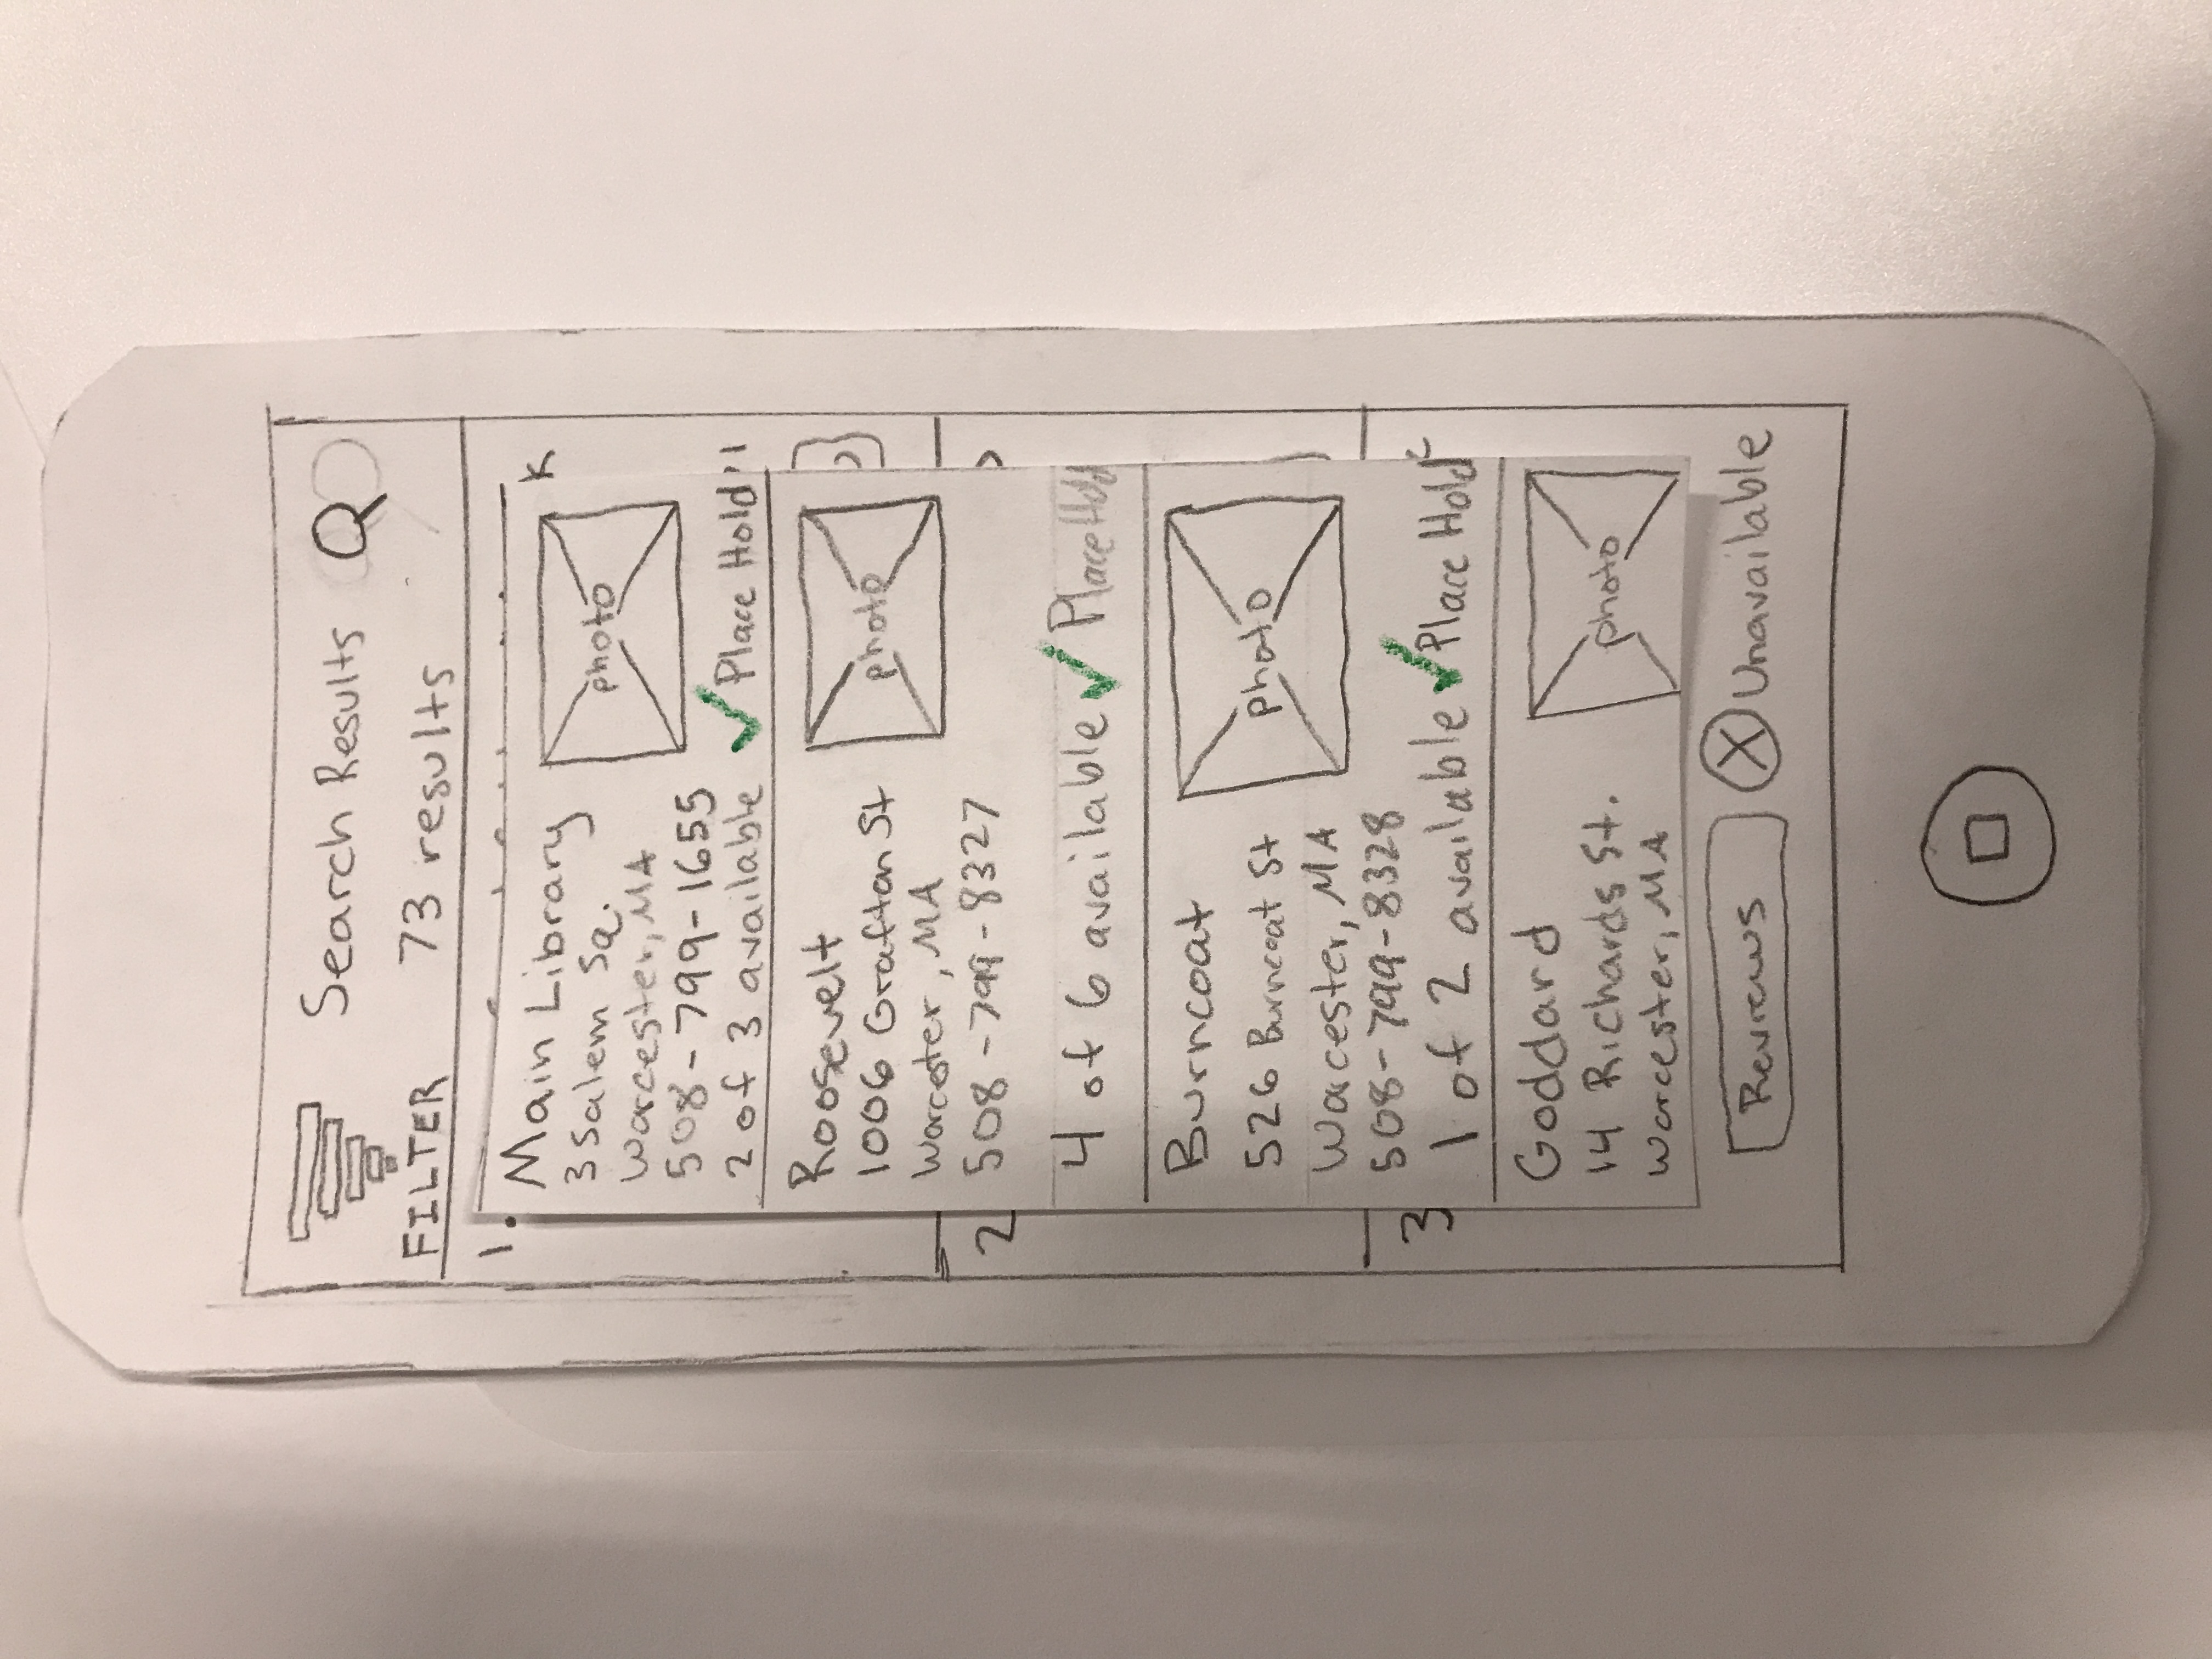 Search Results
FILTER 73 results
1.
Main Library
photo
3 Salem Sq.
Worcester, MA
508-799-1655
2 of 3 available ✓ Place Hold
Roosevelt
photo
1006 Grafton St
Worcester, MA
508-799-8327
2
4 of 6 available ✓ Place Hold
Burncoat
photo
526 Burncoat St
Worcester, MA
508-799-8328
3
1 of 2 available ✓ Place Hold
Goddard
photo
14 Richards St.
Worcester, MA
Reviews X Unavailable